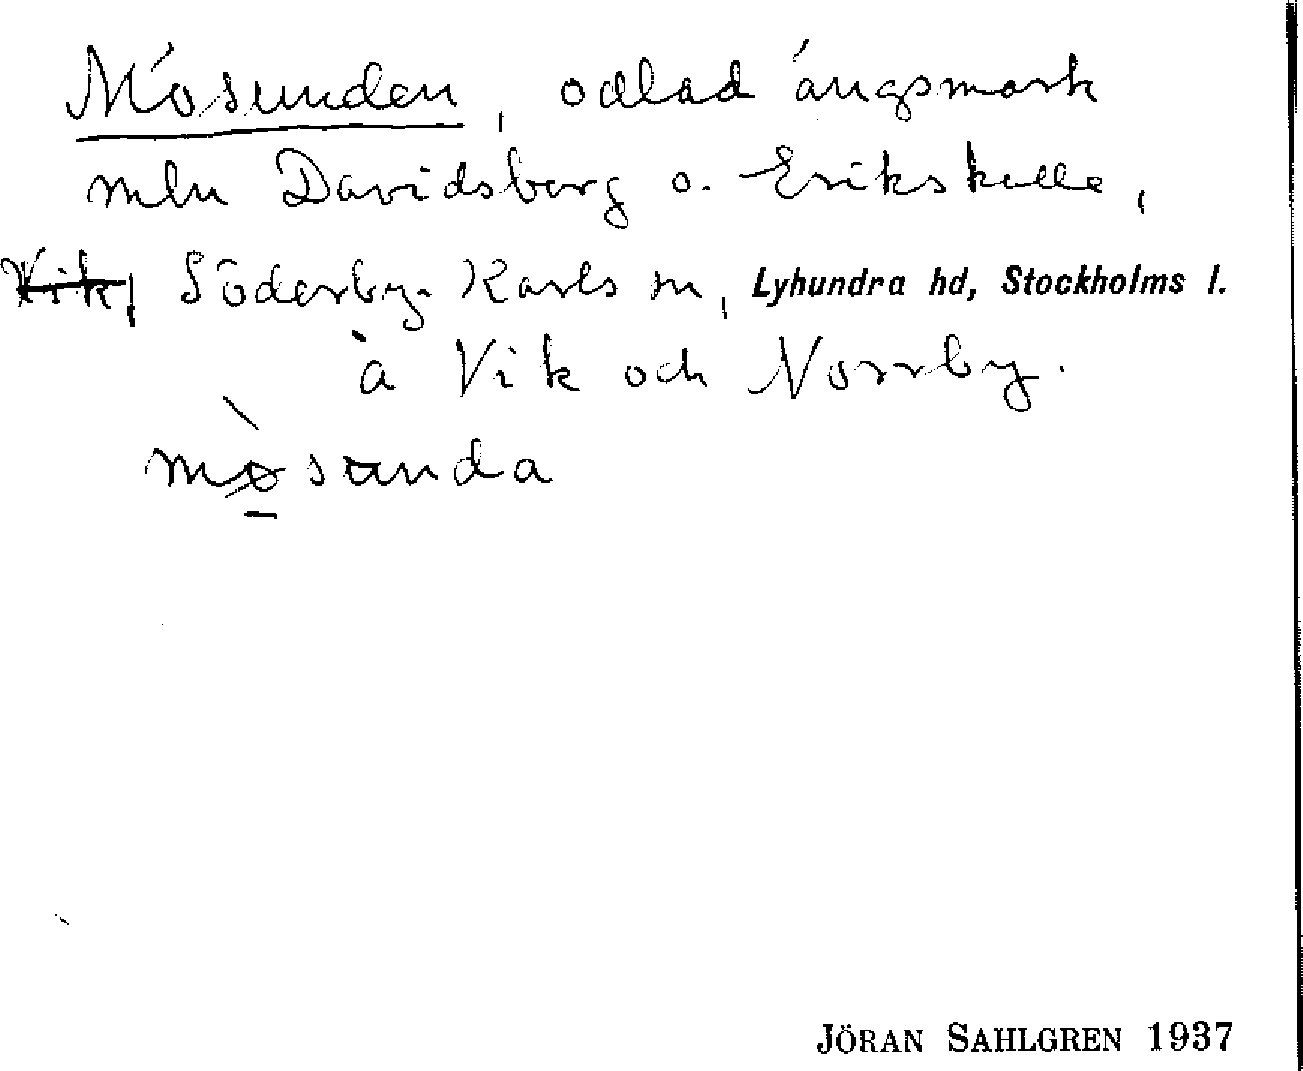 Mösunden, odlad ängsmark
mln Davidsberg o. Erikskulle,
Vik, Söderby-Karls sn, Lyhundra hd, Stockholms l.
à Vik och Norrby.
mø̀sunda
JÖRAN SAHLGREN 1937